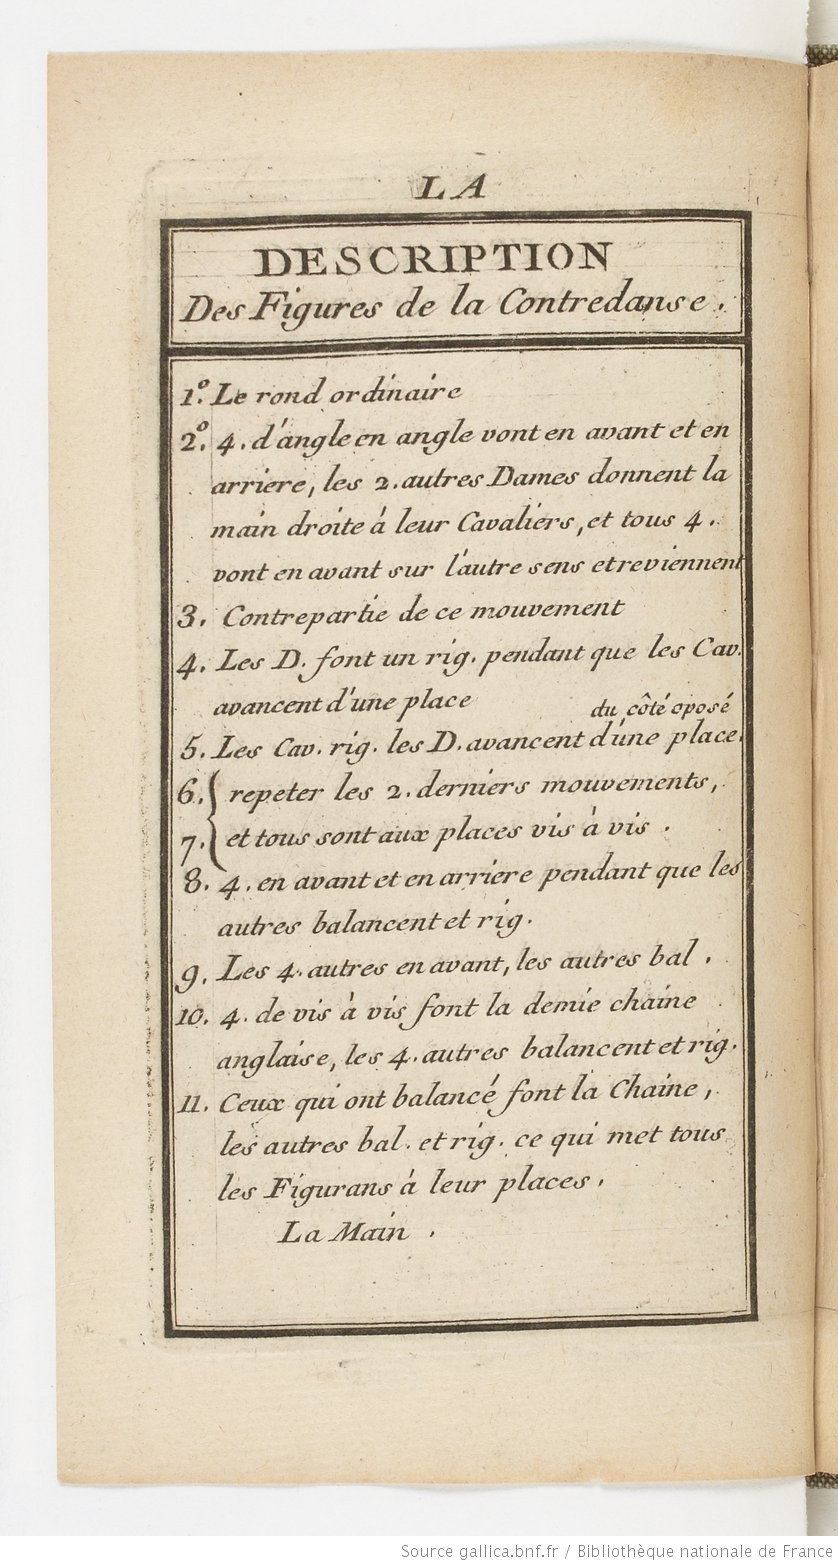 LA
DESCRIPTION
Des Figures de la Contredanse.
1.º Le rond ordinaire
2.º 4. d'angle en angle vont en avant et en
arriere, les 2. autres Dames donnent la
main droite à leur Cavaliers, et tous 4.
vont en avant sur l'autre sens et reviennent
3. Contrepartie de ce mouvement
4. Les D. font un rig. pendant que les Cav.
avancent d'une place
du côté oposé
5. Les Cav. rig. les D. avancent d'une place.
6. { repeter les 2. derniers mouvements,
7. { et tous sont aux places vis à vis.
8. 4. en avant et en arriere pendant que les
autres balancent et rig.
9. Les 4. autres en avant, les autres bal.
10. 4. de vis à vis font la demie chaine
anglaise, les 4. autres balancent et rig.
11. Ceux qui ont balancé font la Chaine,
les autres bal. et rig. ce qui met tous
les Figurans à leur places.
La Main.
Source gallica.bnf.fr / Bibliothèque nationale de France